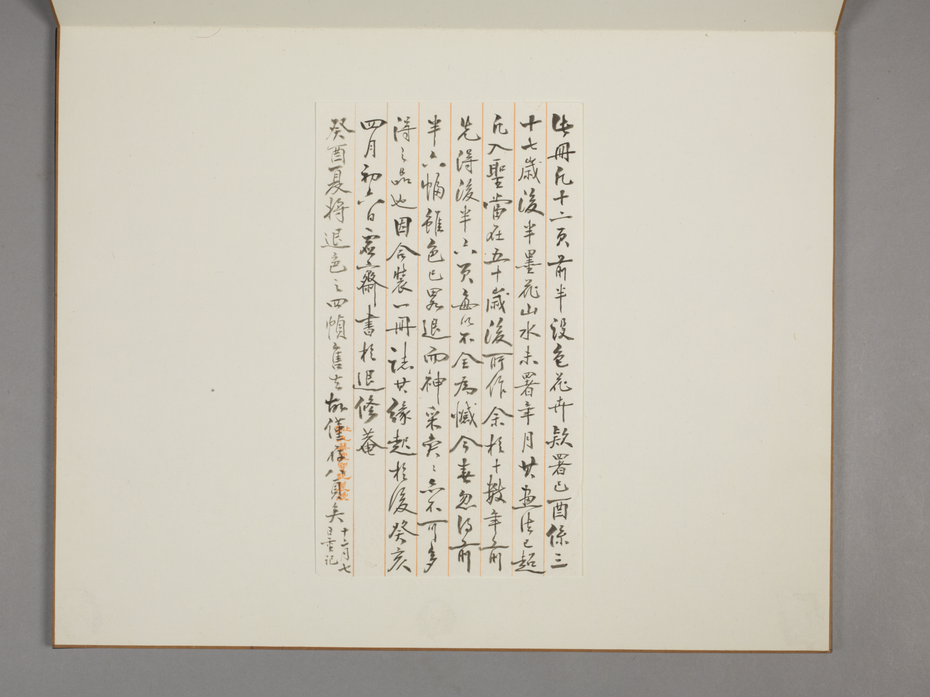 此冊凡十二頁前半設色花卉款署己酉係三
十七歲後半墨花山水未署年月其画法已超
凡入聖當在五十歲後所作余於十數年前
先得後半六頁每以不全為憾今春忽得前
半六幀雖色已畧退而神采奕〻亦不可多
得之品也因合裝一冊誌其緣起於後癸亥
四月初六日虛齋書於退修菴
癸酉夏將退色之四幀售去故僅存八頁矣
十二月七
日重記